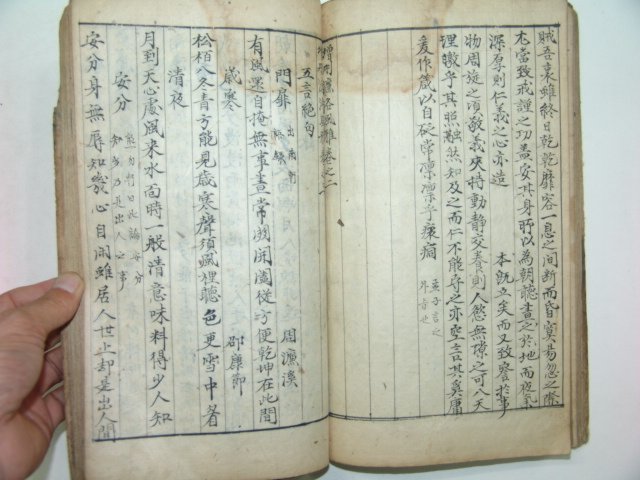 賊吾哀雖終日乾乾靡容一息之間断而昏冥易忽之際
尤當致戒謹之功盖安其身所以為朝聽晝之於地而夜氣
深厚則仁義之心亦造 本既立矣而又致察於事
物周旋之頃敬義夾持動静交養則人慾無隙之可入天
理皦乎其照融然知及之而仁不能守之亦空言其奚庸
爰作箴以自砭常凛凛乎瘝痌
孟子言之
濂洛風雅卷之二
五言絶句
門扉 周濂溪
有風還自掩無事晝常関開闔從方便乾坤在此間
歲寒 邵康節
松栢入冬青方能見歲寒聲須風裡聽色更雪中看
清夜
月到天心處風来水面時一般清意味料得少人知
安分
安分身無辱知幾心自閒雖居人世上却是出人間